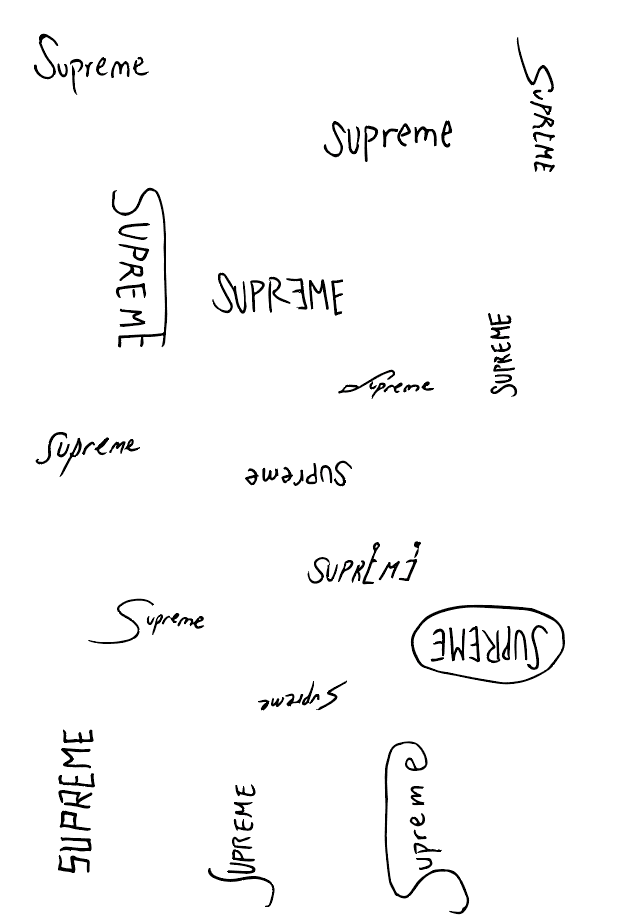 Supreme
SUPREME
Supreme
SUPREME
SUPRƎME
SUPREME
Supreme
Supreme
Supreme
SUPR[M]
Supreme
SUPREME
Supreme
SUPREME
SUPREME
Supreme